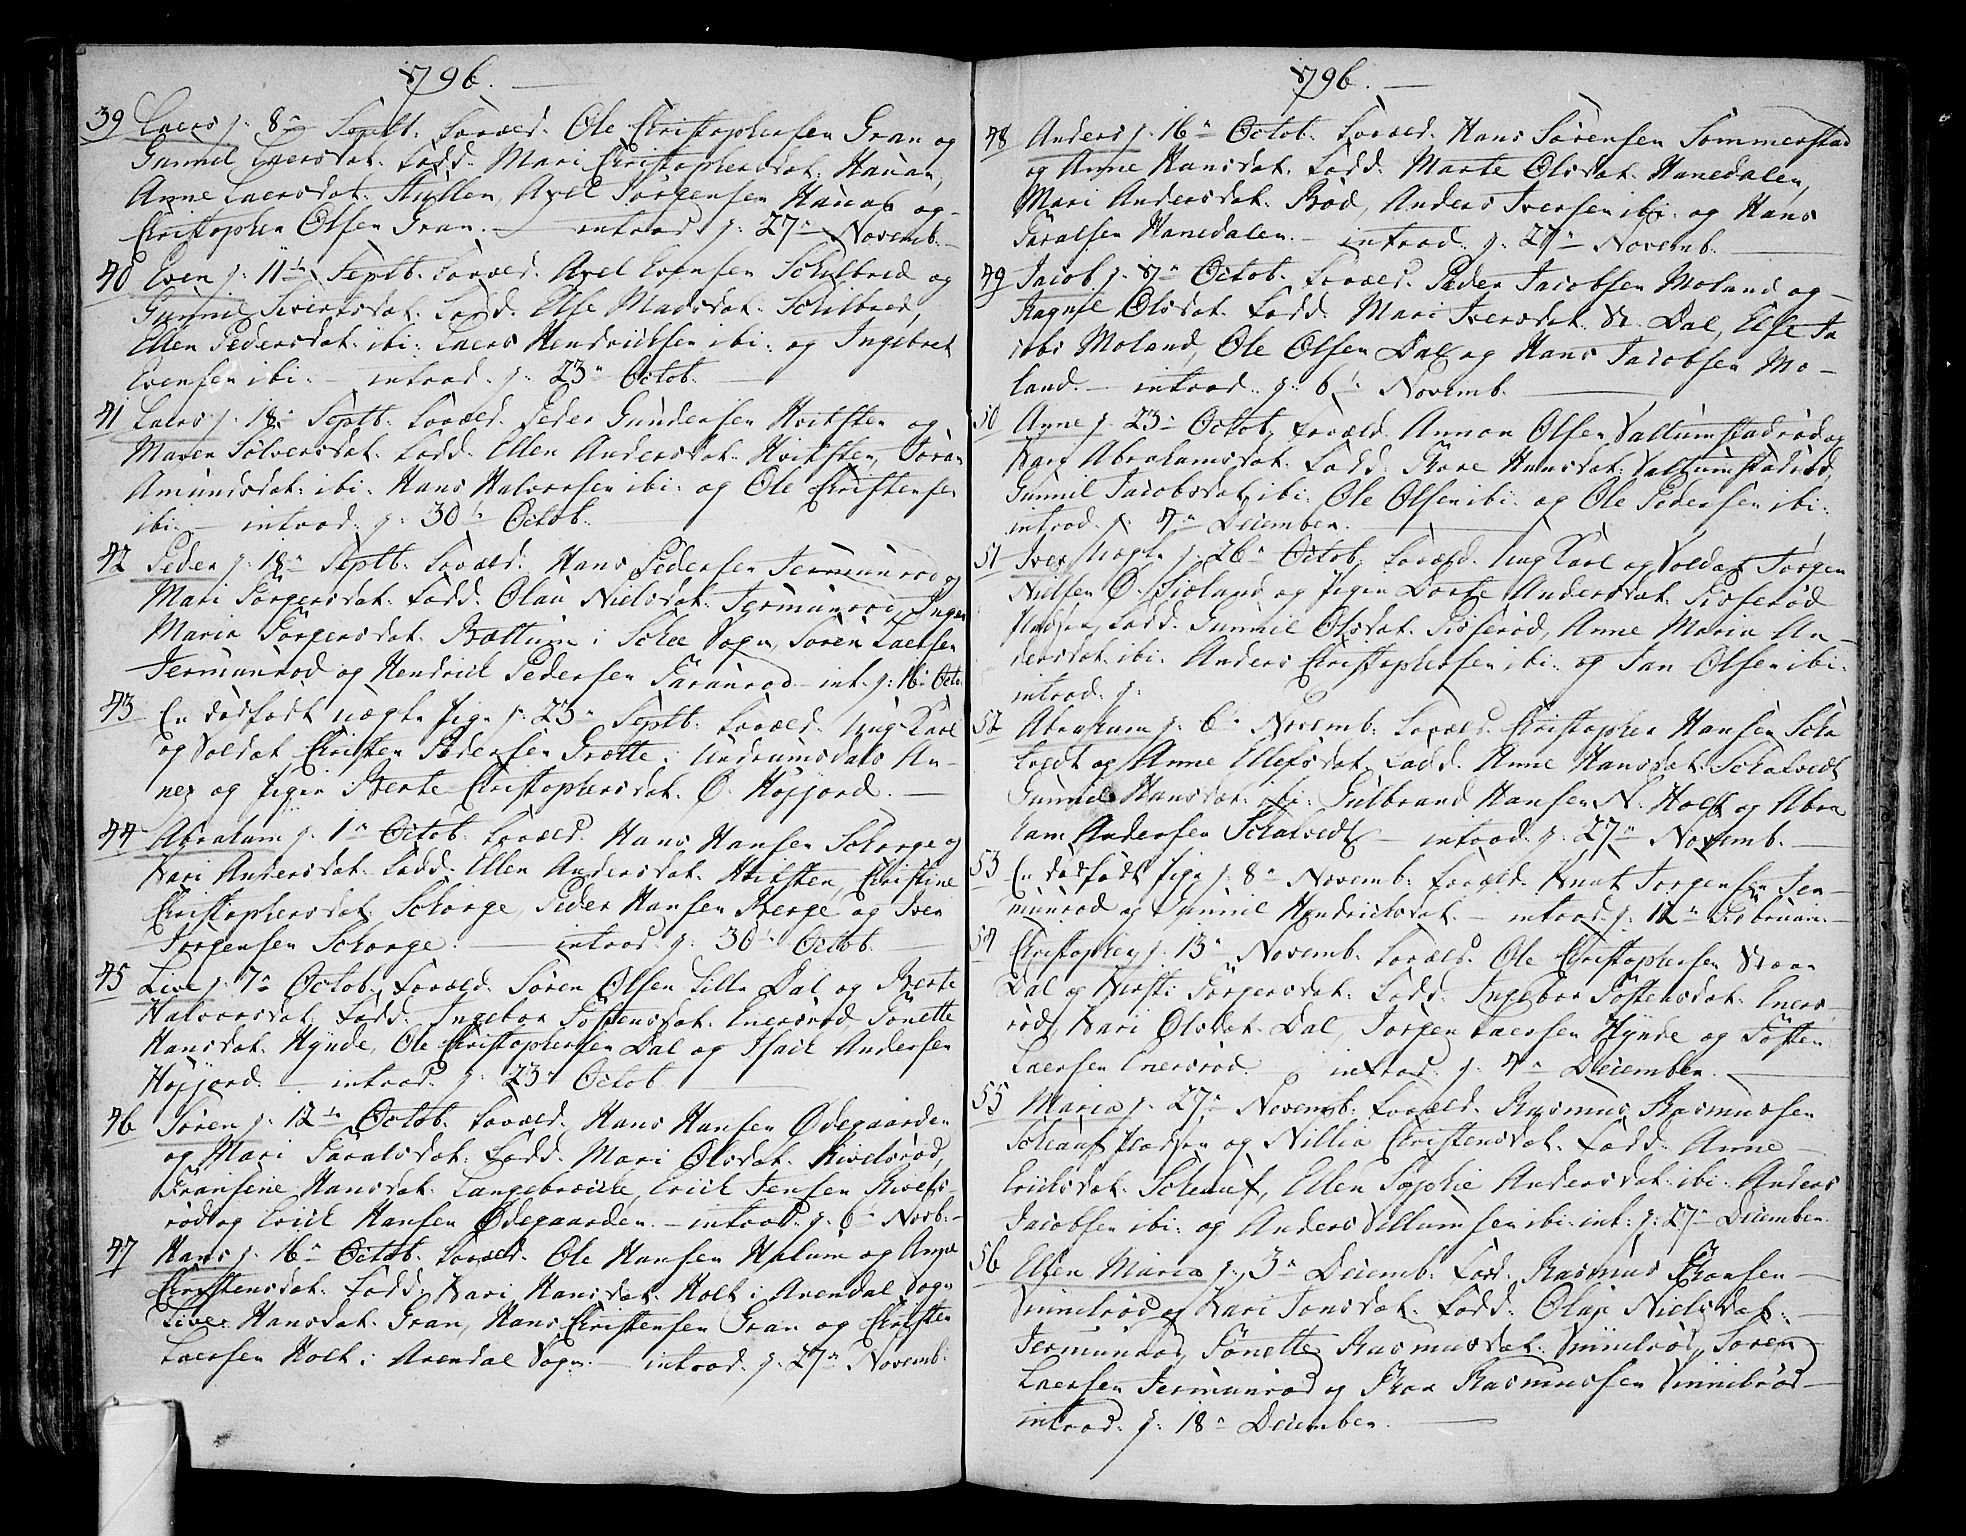 1796.
39 Laers j. 8de Septb. Foræld. Ole Christophersen Gran og
Gunnil Laersdat. Fadd. Mari Christophersdat. Hauan,
Anne Laersdat. Hullen, Axel Jörgensen Hauan og
Christopher Olsen Gran. — introd. j. 27de Novemb.
40 Even j. 11te Septb. Foræld. Axel Evensen Schelbred og
Gunnil Siversdat. Fadd. Else Madsdat. Schelbred,
Ellen Pedersdat. ibi. Laers Hendrichsen ibi. og Ingebret
Evensen ibi. — introd. j. 23de Octob.
41 Laers j. 18de Septb. Foræld. Peder Gundersen Hvitsten og
Maren Sölversdat. Fadd. Ellen Andersdat. Hvitsten, Söran
Amundsdat. ibi. Hans Halvorsen ibi. og Ole Christensen
ibi. — introd. j. 30te Octob.
42 Peder j. 18de Septb. Foræld. Hans Pedersen Jermunrod og
Mari Jörgersdat. Fadd. Olau Nielsdat. Jermunrod, Inger
Maria Jörgersdat. Brættum i Schee Sogn, Sören Laersen
Jermunrod og Hendrich Pedersen Faranrod — int. j. 16de Octo.
43 En dödfödt uægte Pige j. 23de Septb. Foræld. Ung Karl
og Soldat Christen Pedersen Grotte i Undrumsdals An-
nex og Pigen Berte Christophersdat. Ö. Höyjord. —
44 Abraham j. 1te Octob. Foræld. Hans Hansen Schorge og
Kari Andersdat. Fadd. Ellen Andersdat. Hvitsten, Christine
Christophersdat. Schorge, Peder Hansen Berge og Iver
Jörgensen Schorge. — introd. j. 30te Octob.
45 Live j. 7de Octob. Foræld. Sören Olsen Lille Dal og Berte
Halvorsdat. Fadd. Ingebor Töstensdat. Enersrod, Tönette
Hansdat. Hynde, Ole Christophersen Dal og Isach Andersen
Höyjord. — introd. j. 23de Octob.
46 Sören j. 12te Octob. Foræld. Hans Hansen Ödegaarden
og Mari Taralsdat. Fadd. Mari Olsdat. Rivelsröd,
Fransene Hansdat. Langebreche, Erich Jensen Rivels-
rod og Erich Hansen Ödegaarden. — introd. j. 6te Novb.
47 Hans j. 16de Octob. Foræld. Ole Hansen Hplum og Anne
Christensdat. Fadd. Kari Hansdat. Holt i Arendal Sogn
Live Hansdat. Gran, Hans Christensen Gran og Christen
Laersen Holt i Arendal Sogn. — introd. j. 27de Novemb.
1796.
48 Anders j. 16de Octob. Foræld. Hans Sörensen Sommerstad
og Anne Hansdat. Fadd. Marte Olsdat. Hanedalen,
Mari Andersdat. Röd, Anders Iversen ibi. og Hans
Taralsen Hanedalen. — introd. j. 27de Novemb.
49 Jacob j. 17de Octob. Foræld. Peder Jacobsen Moland og
Ragnil Olsdat. Fadd. Mari Iversdat. St. Dal, Else Ja
cobs Moland, Ole Olsen Dal og Hans Jacobsen Mo-
land. — introd. j. 6te Novemb.
50 Anne j. 23de Octob. Foræld. Annon Olsen Vallumstadröd og
Kari Abrahamsdat. Fadd. Tore Hansdat. Vallumstadröd,
Gunnil Jacobsdat. ibi. Ole Olsen ibi. og Ole Pedersen ibi.
introd. j. 4de December.
51 Iver Uægte j. 26de Octob. Foræld. Ung Karl og Soldat Jörgen
Nielsen Ö. Fioland og Pigen Dorte Andersdat. Pisserod
Fadd. Gunnil Olsdat. Pisserod, Anne Maria An-
dersdat. ibi. Anders Christophersen ibi. og Jan Olsen ibi.
introd. j.
52 Abraham j. 6te Novemb. Foræld. Christopher Hansen Scha
lvedt og Anne Ellefsdat. Fadd. Anne Hansdat. Schalvedt
Gunnil Hansdat. ibi. Gulbrand Hansen N. Holt og Abra
ham Andersen Schalvedt — introd. j. 27de Novemb.
53 En dödfödt Pige j. 8de Novemb. Foræld. Knut Jörgensen Jer-
munrod og Gunnil Hendrichsdat. — introd. j. 12te Februari.
54 Christopher j. 13de Novemb. Foræld. Ole Christophersen Store
Dal og Kirsti Jörgersdat. Fadd. Ingebor Töstensdat. Eners
röd, Kari Olsdat. Dal, Jörgen Laersen Hynde og Tösten
Laersen Enersröd — introd. j. 4de December.
55 Maria j. 27de Novemb. Foræld. Rasmus Rasmussen
Schauf og Nillia Christensdat. Fadd. Anne
Erichsdat. Schauf, Ellen Sophie Andersdat. ibi. Anders
Jacobsen ibi. og Anders Villumsen ibi. int. j. 27de December.
56 Ellen Maria j. 3de Decemb. For. Rasmus Thorsen
Vinnelröd og Kari Jonsdat. Fadd. Olau Nielsdat.
Jermunrod, Tönette Rasmusdat. Vinnelröd, Sören
Laersen Jermunrod og Thor Rasmussen Vinnelröd
introd. j. 18de December.